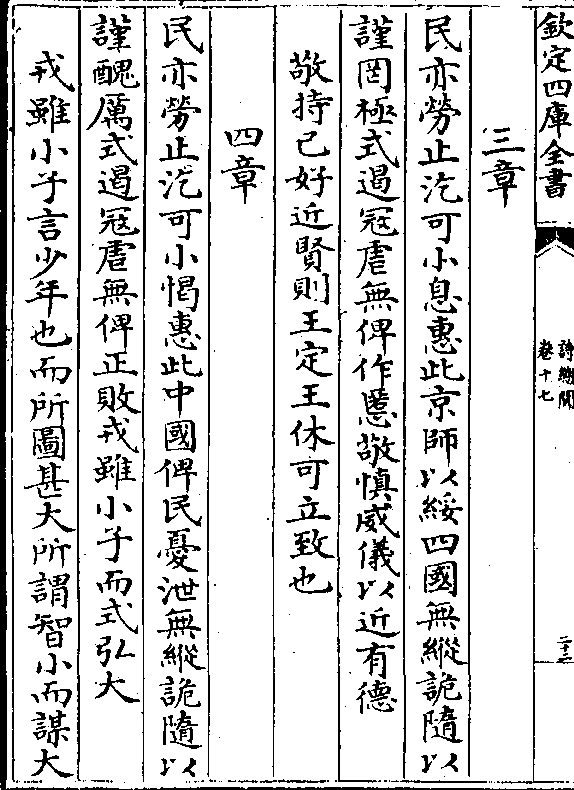 欽定四庫全書
詩總聞
卷十七
二十三
三章
民亦勞止汔可小息惠此京師以綏四國無縱詭隨以
謹罔極式遏寇虐無俾作慝敬慎威儀以近有德
敬持已好近賢則王定王休可立致也
四章
民亦勞止汔可小愒惠此中國俾民憂泄無縱詭隨以
謹醜厲式遏寇虐無俾正敗戎雖小子而式弘大
戎雖小子言少年也而所圖甚大所謂智小而謀大